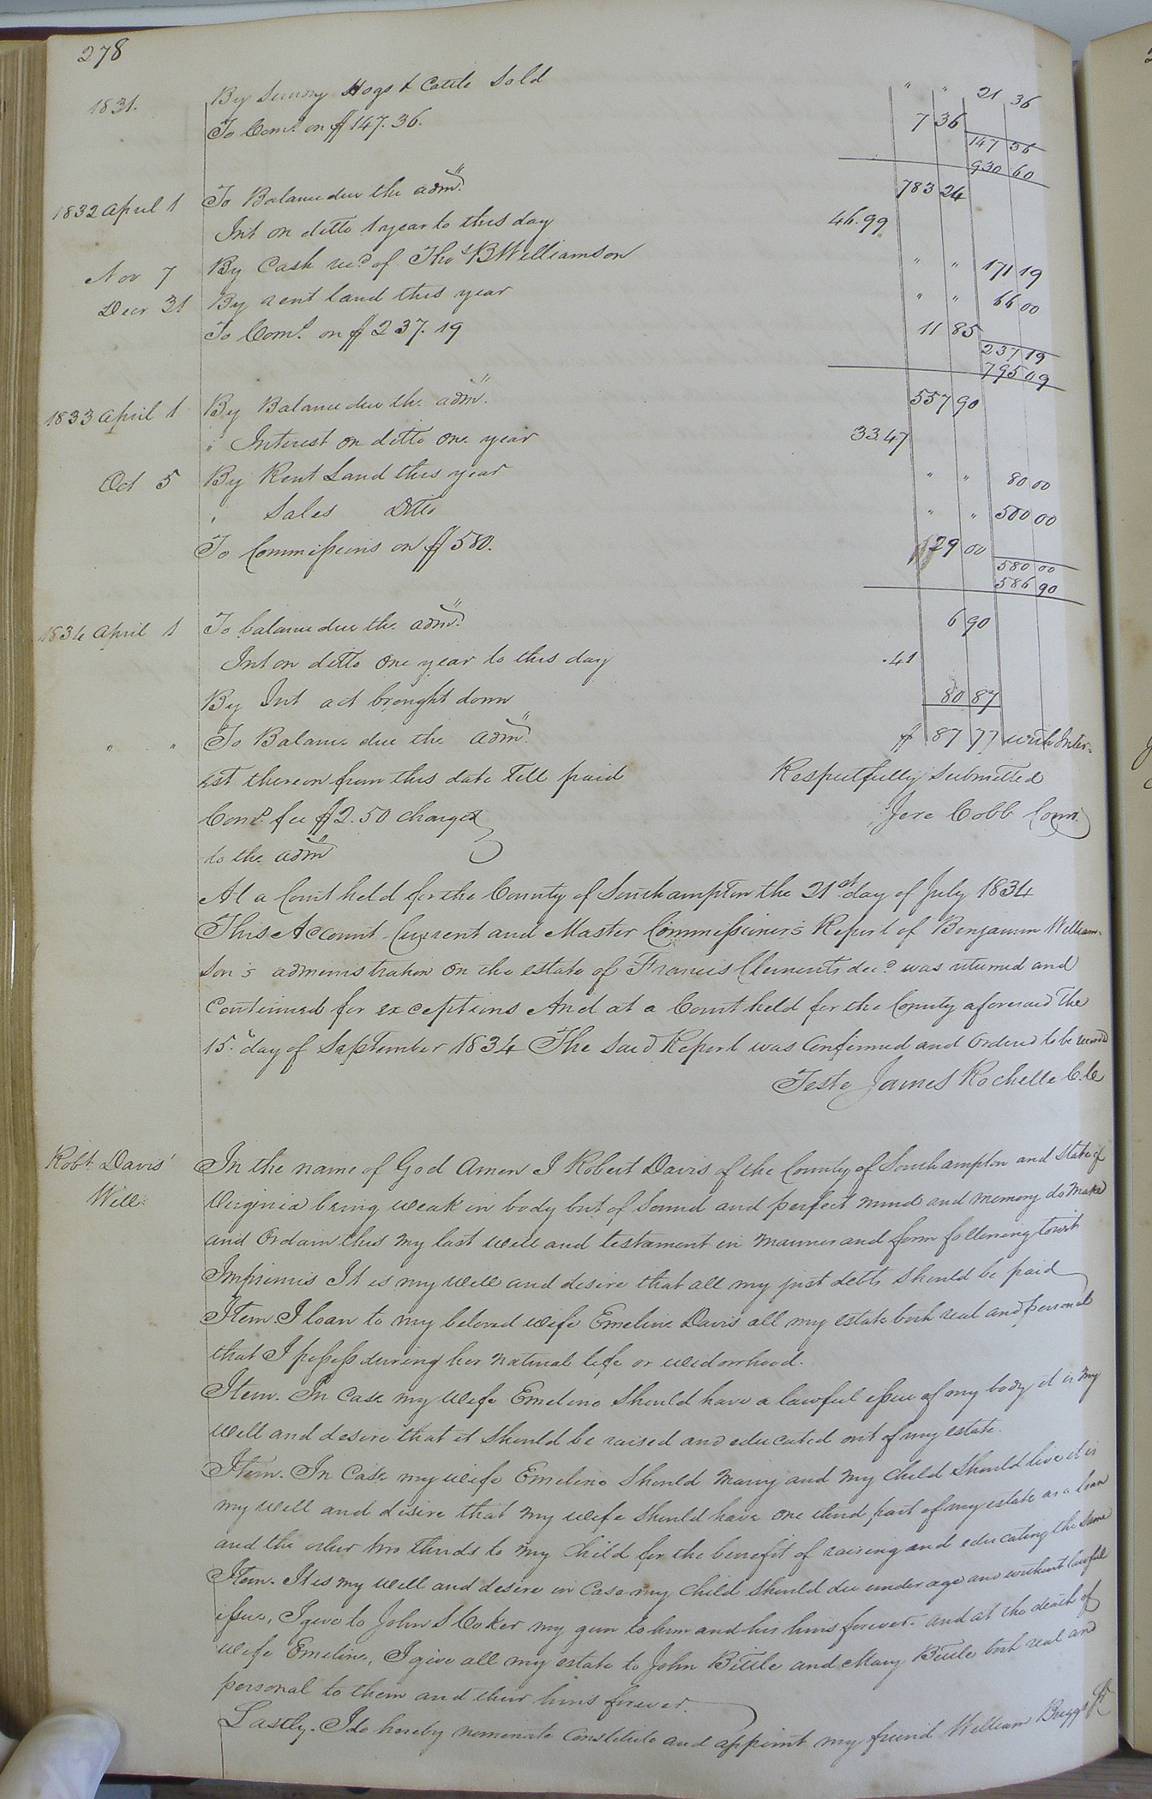 278
1831. By Sundry Hogs & Cattle Sold " " 21 36
To Coms. on $147.36. 7 36
147 36
930 60
1832 April 1 To Balance due the admr. 783 24
Int on ditto 1 year to this day 46.99
Nov 7 By Cash recd of Thos B Williamson " " 171 19
Decr 31 By rent land this year " " 66 00
To Coms. on $237.19 11 85
237 19
795 09
1833 April 1 By Balance due the admr. 557 90
" Interest on ditto one year 33.47
Oct 5 By Rent Land this year " " 80 00
" Sales Ditto " " 500 00
To Commissions on $580. 29 00
580 00
586 90
1834 April 1 To balance due the admr. 6 90
Int on ditto One year to this day .41
By Int act brought down 80 87
" " To Balance due the admr. $ 87 77 with Inter-
est thereon from this date till paid Respectfully Submitted
Coms fee $2.50 charged Jere Cobb Comr.
to the admr
At a Court held for the County of Southampton the 21st day of July 1834
This Account Current and Master Commissioner's Report of Benjamin William-
son's administration on the estate of Francis Clements decd was returned and
Continued for exceptions And at a Court held for the County aforesaid the
15th day of September 1834 The Said Report was Confirmed and Ordered to be recorded
Teste James Rochelle C.C.
Robt Davis' Will: In the name of God Amen I Robert Davis of the County of Southampton and State of
Virginia being weak in body but of Sound and perfect mind and memory do make
and Ordain this my last will and testament in manner and form following towit
Imprimis It is my will and desire that all my just debts should be paid
Item I loan to my beloved wife Emeline Davis all my estate both real and personal
that I possess during her natural life or widowhood.
Item. In Case my wife Emeline Should have a lawful issue of my body it is my
will and desire that it should be raised and educated out of my estate.
Item. In Case my wife Emeline Should marry and my Child should live it is
my will and desire that my wife should have one third part of my estate as a loan
and the other two thirds to my Child for the benefit of raising and educating the same
Item. It is my will and desire in Case my Child should die under age and without lawful
issue, I give to John S Coker my gun to him and his heirs forever. and at the death of
wife Emeline, I give all my estate to John Bittle and Mary Bittle both real and
personal to them and their heirs forever.
Lastly. I do hereby nominate Constitute and appoint my friend William Briggs